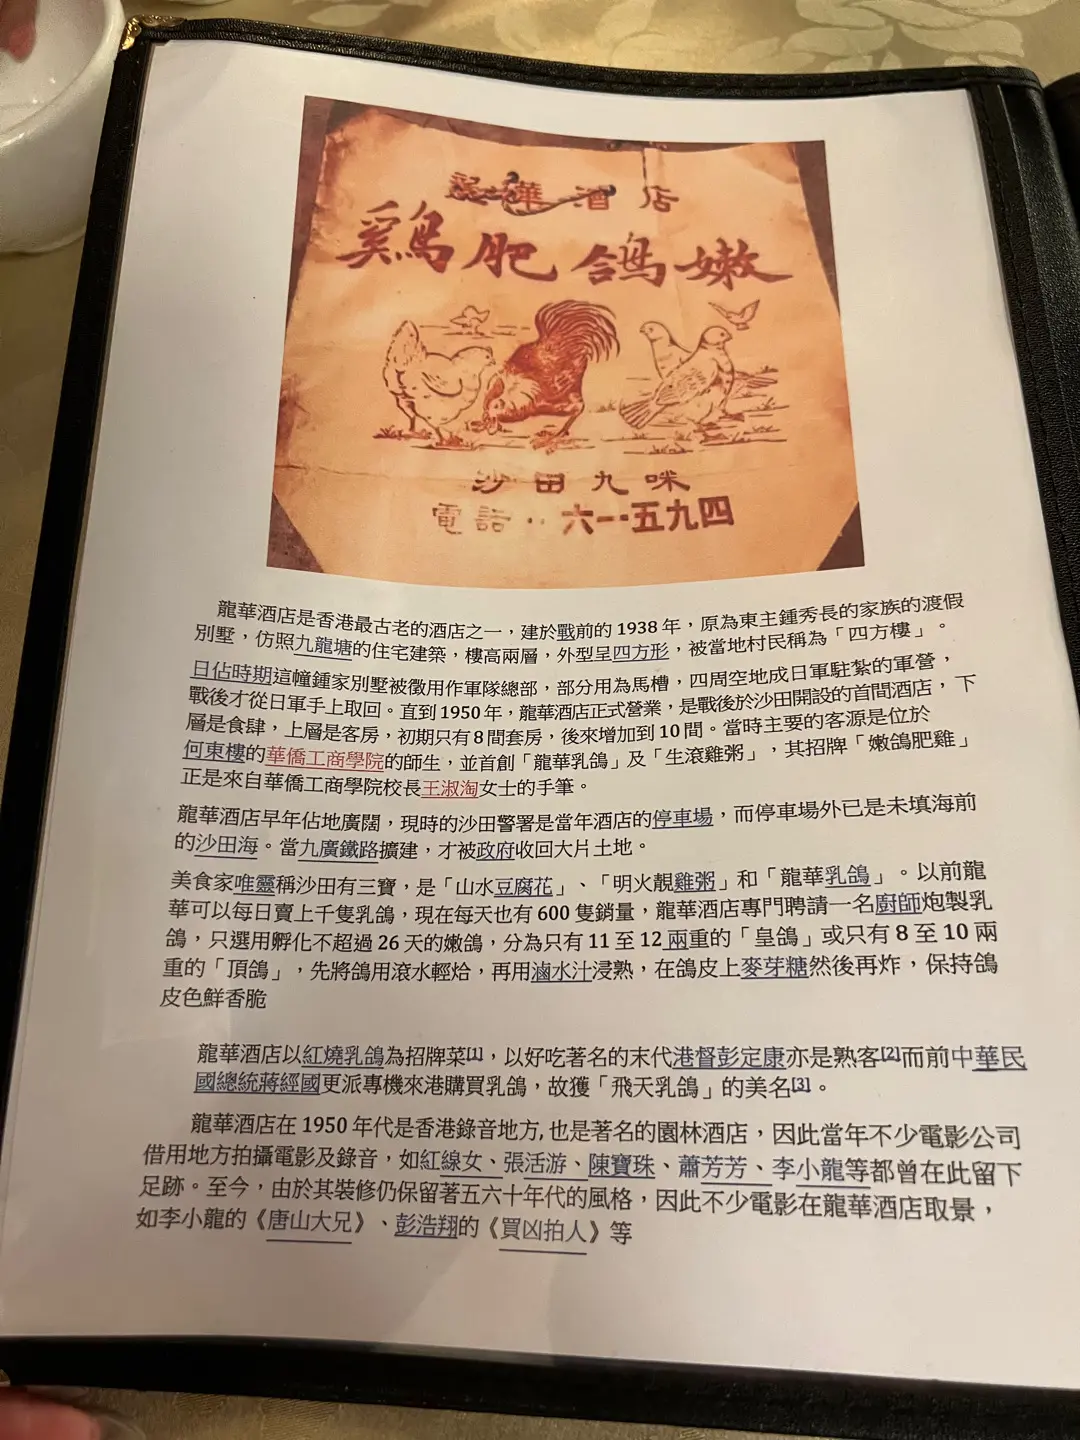 龍華酒店
鷄肥鴿嫩
沙田九咪
電話：六一·五九四
龍華酒店是香港最古老的酒店之一，建於戰前的 1938 年，原為東主鍾秀長的家族的渡假
別墅，仿照九龍塘的住宅建築，樓高兩層，外型呈四方形，被當地村民稱為「四方樓」。
日佔時期這幢鍾家別墅被徵用作軍隊總部，部分用為馬槽，四周空地成日軍駐紮的軍營，
戰後才從日軍手上取回。直到 1950 年，龍華酒店正式營業，是戰後於沙田開設的首間酒店，下
層是食肆，上層是客房，初期只有 8 間套房，後來增加到 10 間。當時主要的客源是位於
何東樓的華僑工商學院的師生，並首創「龍華乳鴿」及「生滾雞粥」，其招牌「嫩鴿肥雞」
正是來自華僑工商學院校長王淑淘女士的手筆。
龍華酒店早年佔地廣闊，現時的沙田警署是當年酒店的停車場，而停車場外已是未填海前
的沙田海。當九廣鐵路擴建，才被政府收回大片土地。
美食家唯靈稱沙田有三寶，是「山水豆腐花」、「明火靚雞粥」和「龍華乳鴿」。以前龍
華可以每日賣上千隻乳鴿，現在每天也有 600 隻銷量，龍華酒店專門聘請一名廚師炮製乳
鴿，只選用孵化不超過 26 天的嫩鴿，分為只有 11 至 12 兩重的「皇鴿」或只有 8 至 10 兩
重的「頂鴿」，先將鴿用滾水輕烚，再用滷水汁浸熟，在鴿皮上麥芽糖然後再炸，保持鴿
皮色鮮香脆
龍華酒店以紅燒乳鴿為招牌菜[1]，以好吃著名的末代港督彭定康亦是熟客[2]而前中華民
國總統蔣經國更派專機來港購買乳鴿，故獲「飛天乳鴿」的美名[3]。
龍華酒店在 1950 年代是香港錄音地方, 也是著名的園林酒店，因此當年不少電影公司
借用地方拍攝電影及錄音，如紅線女、張活游、陳寶珠、蕭芳芳、李小龍等都曾在此留下
足跡。至今，由於其裝修仍保留著五六十年代的風格，因此不少電影在龍華酒店取景，
如李小龍的《唐山大兄》、彭浩翔的《買凶拍人》等